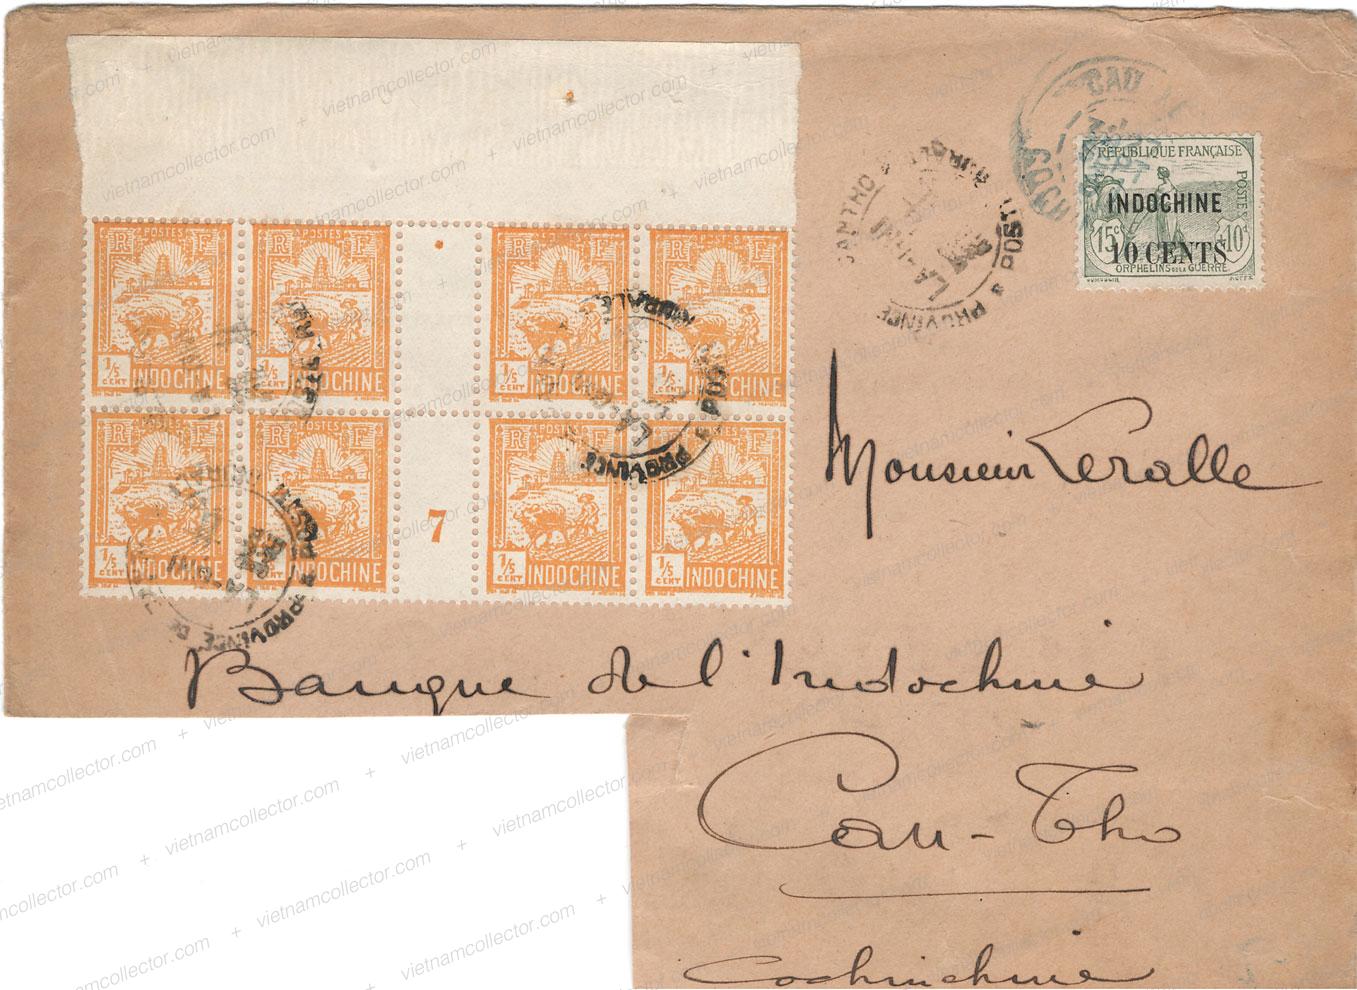 RF POSTES
1/5 CENT INDOCHINE
RF POSTES
1/5 CENT INDOCHINE
RF POSTES
1/5 CENT INDOCHINE
RF POSTES
1/5 CENT INDOCHINE
RF POSTES
1/5 CENT INDOCHINE
RF POSTES
1/5 CENT INDOCHINE
7
RF POSTES
1/5 CENT INDOCHINE
RF POSTES
1/5 CENT INDOCHINE
CAU KE
COCH
RÉPUBLIQUE FRANÇAISE
POSTES
INDOCHINE
15c 10c
10 CENTS
ORPHELINS DE LA GUERRE
POSTE RURALE
PROVINCE
CANTHO
POSTE RURALE
PROVINCE
POSTE RURALE
PROVINCE DE
Monsieur Leralle
Banque de l'Indochine
Can-Tho
Cochinchine
vietnamcollector.com